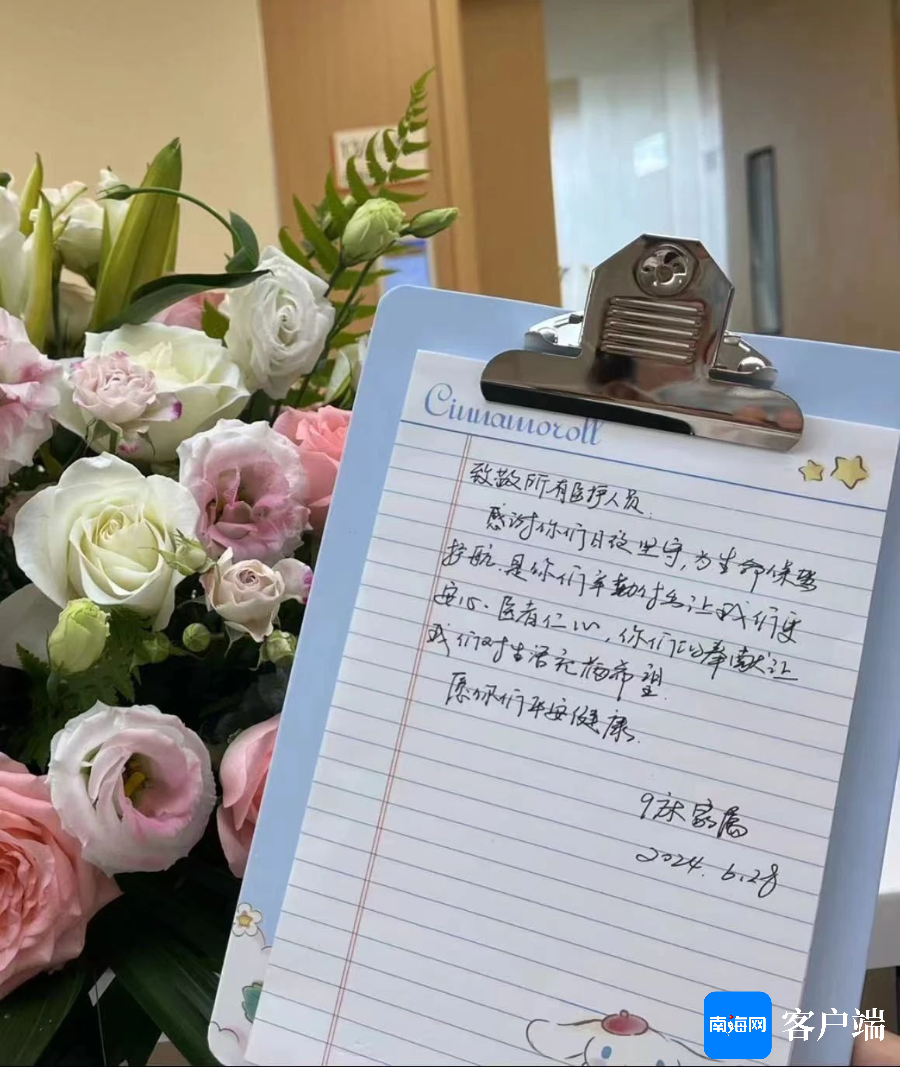 Cinnamoroll
致敬所有医护人员:
感谢你们日夜坚守,为生命保驾
护航.是你们辛勤付出让我们更
安心.医者仁心,你们的奉献让
我们对生活充满希望.
愿你们平安健康.
9床家属
2024.6.28
南海网 客户端